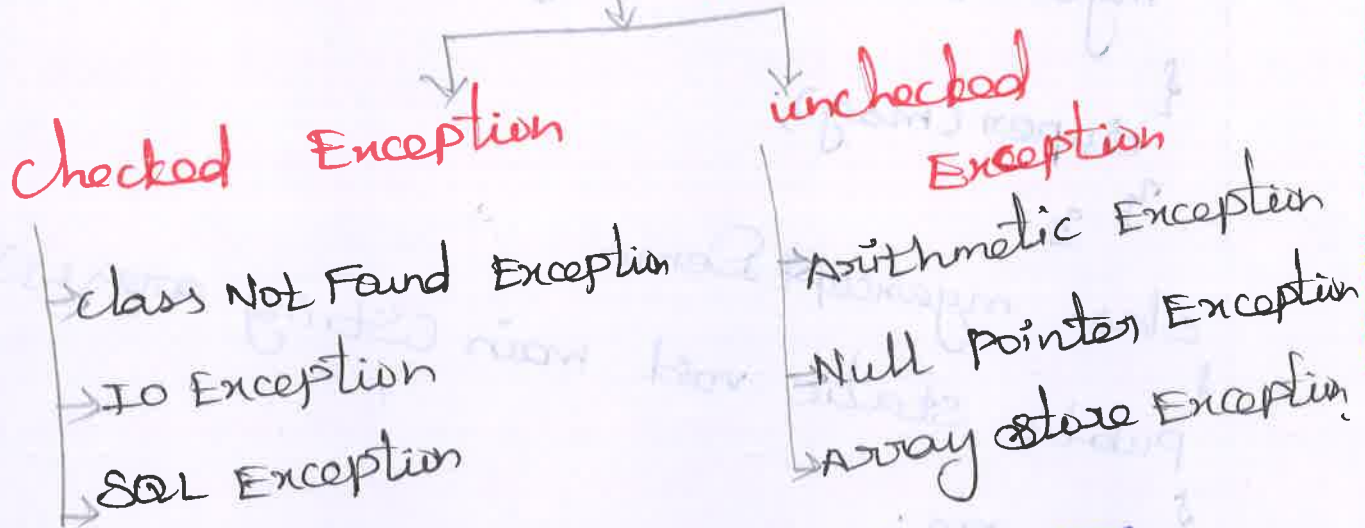 checked Exception
class Not Found Exception
IO Exception
SQL Exception
unchecked
Exception
Arithmetic Exception
Null pointer Exception
Array store Exception